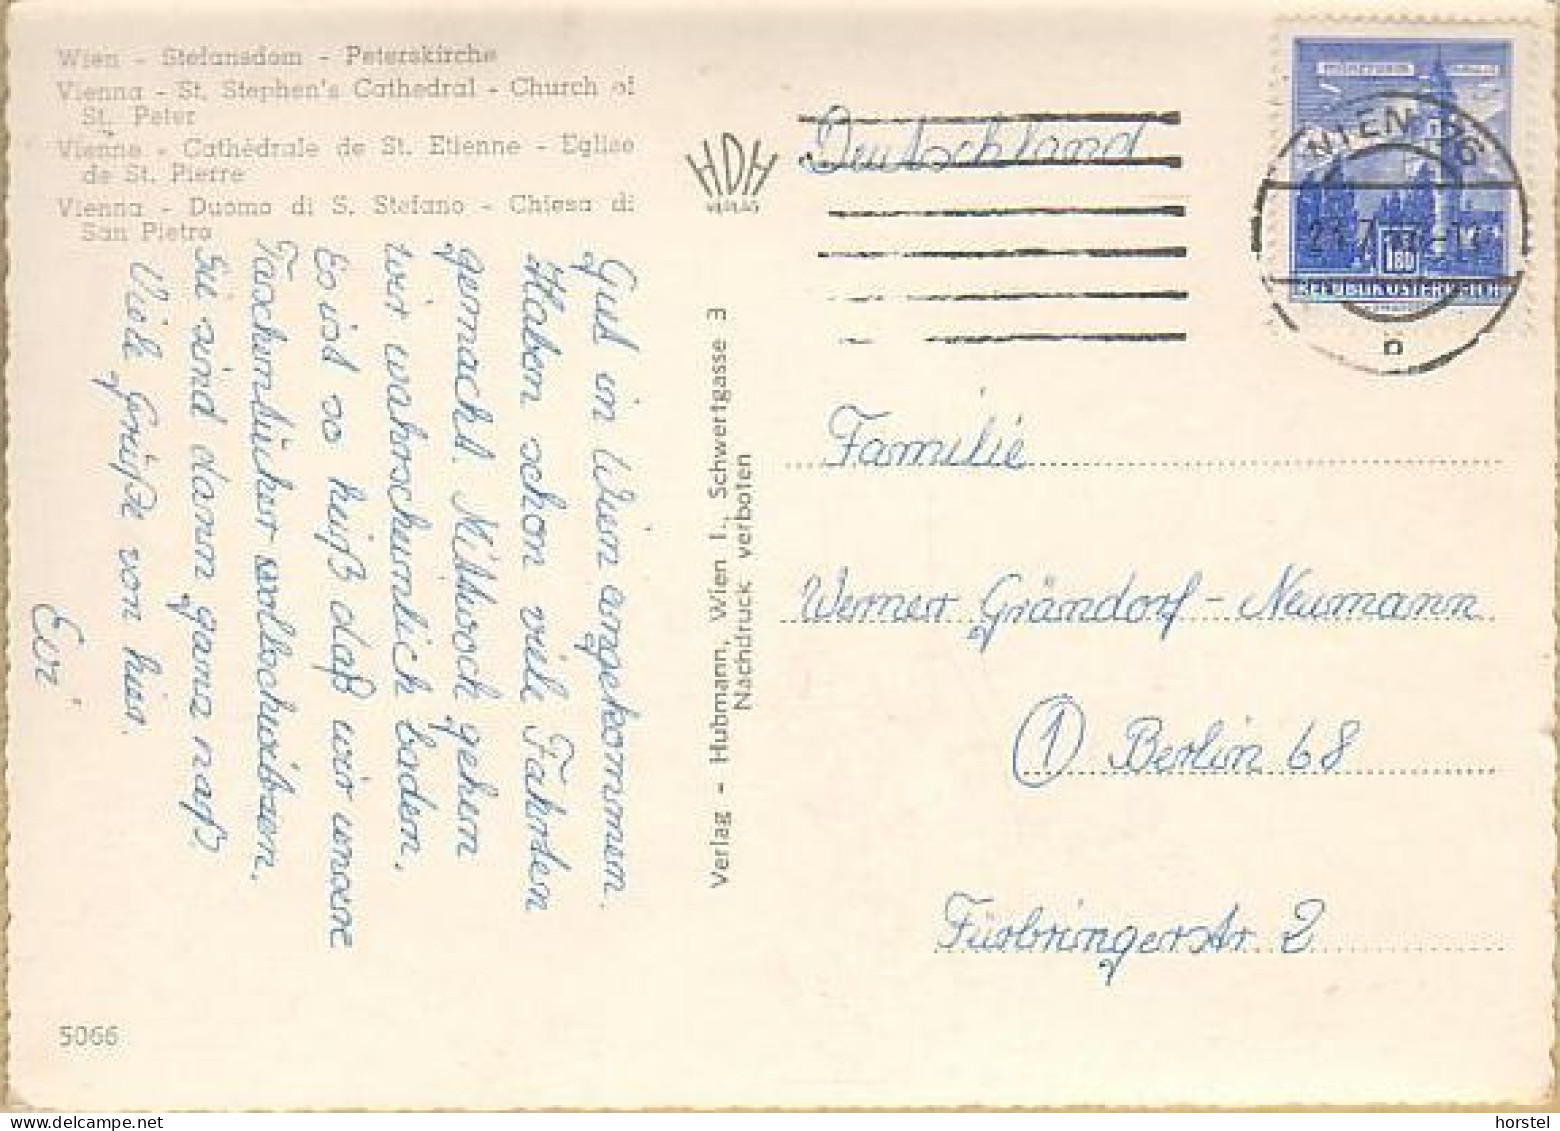 Wien - Stefansdom - Peterskirche
Vienna - St. Stephen's Cathedral - Church of
St. Peter
Vienne - Cathédrale de St. Etienne - Eglise
de St. Pierre
Vienna - Duomo di S. Stefano - Chiesa di
San Pietro
HDH
VERLAG
Deutschland
WIEN 76
1.80
REPUBLIK ÖSTERREICH
Gut in Wien angekommen.
Haben schon viele Fahrten
gemacht. Mittwoch gehen
wir wahrscheinlich baden.
Es ist so heiß daß wir unsere
Taschentücher vollschwitzen.
Sie sind dann ganz naß.
Viele Grüße von hier.
Evi
Verlag - Hubmann, Wien I., Schwertgasse 3
Nachdruck verboten
Familie
Werner Grändorf - Neumann
1 Berlin 68
Fürbringerstr 2
5066
horstel